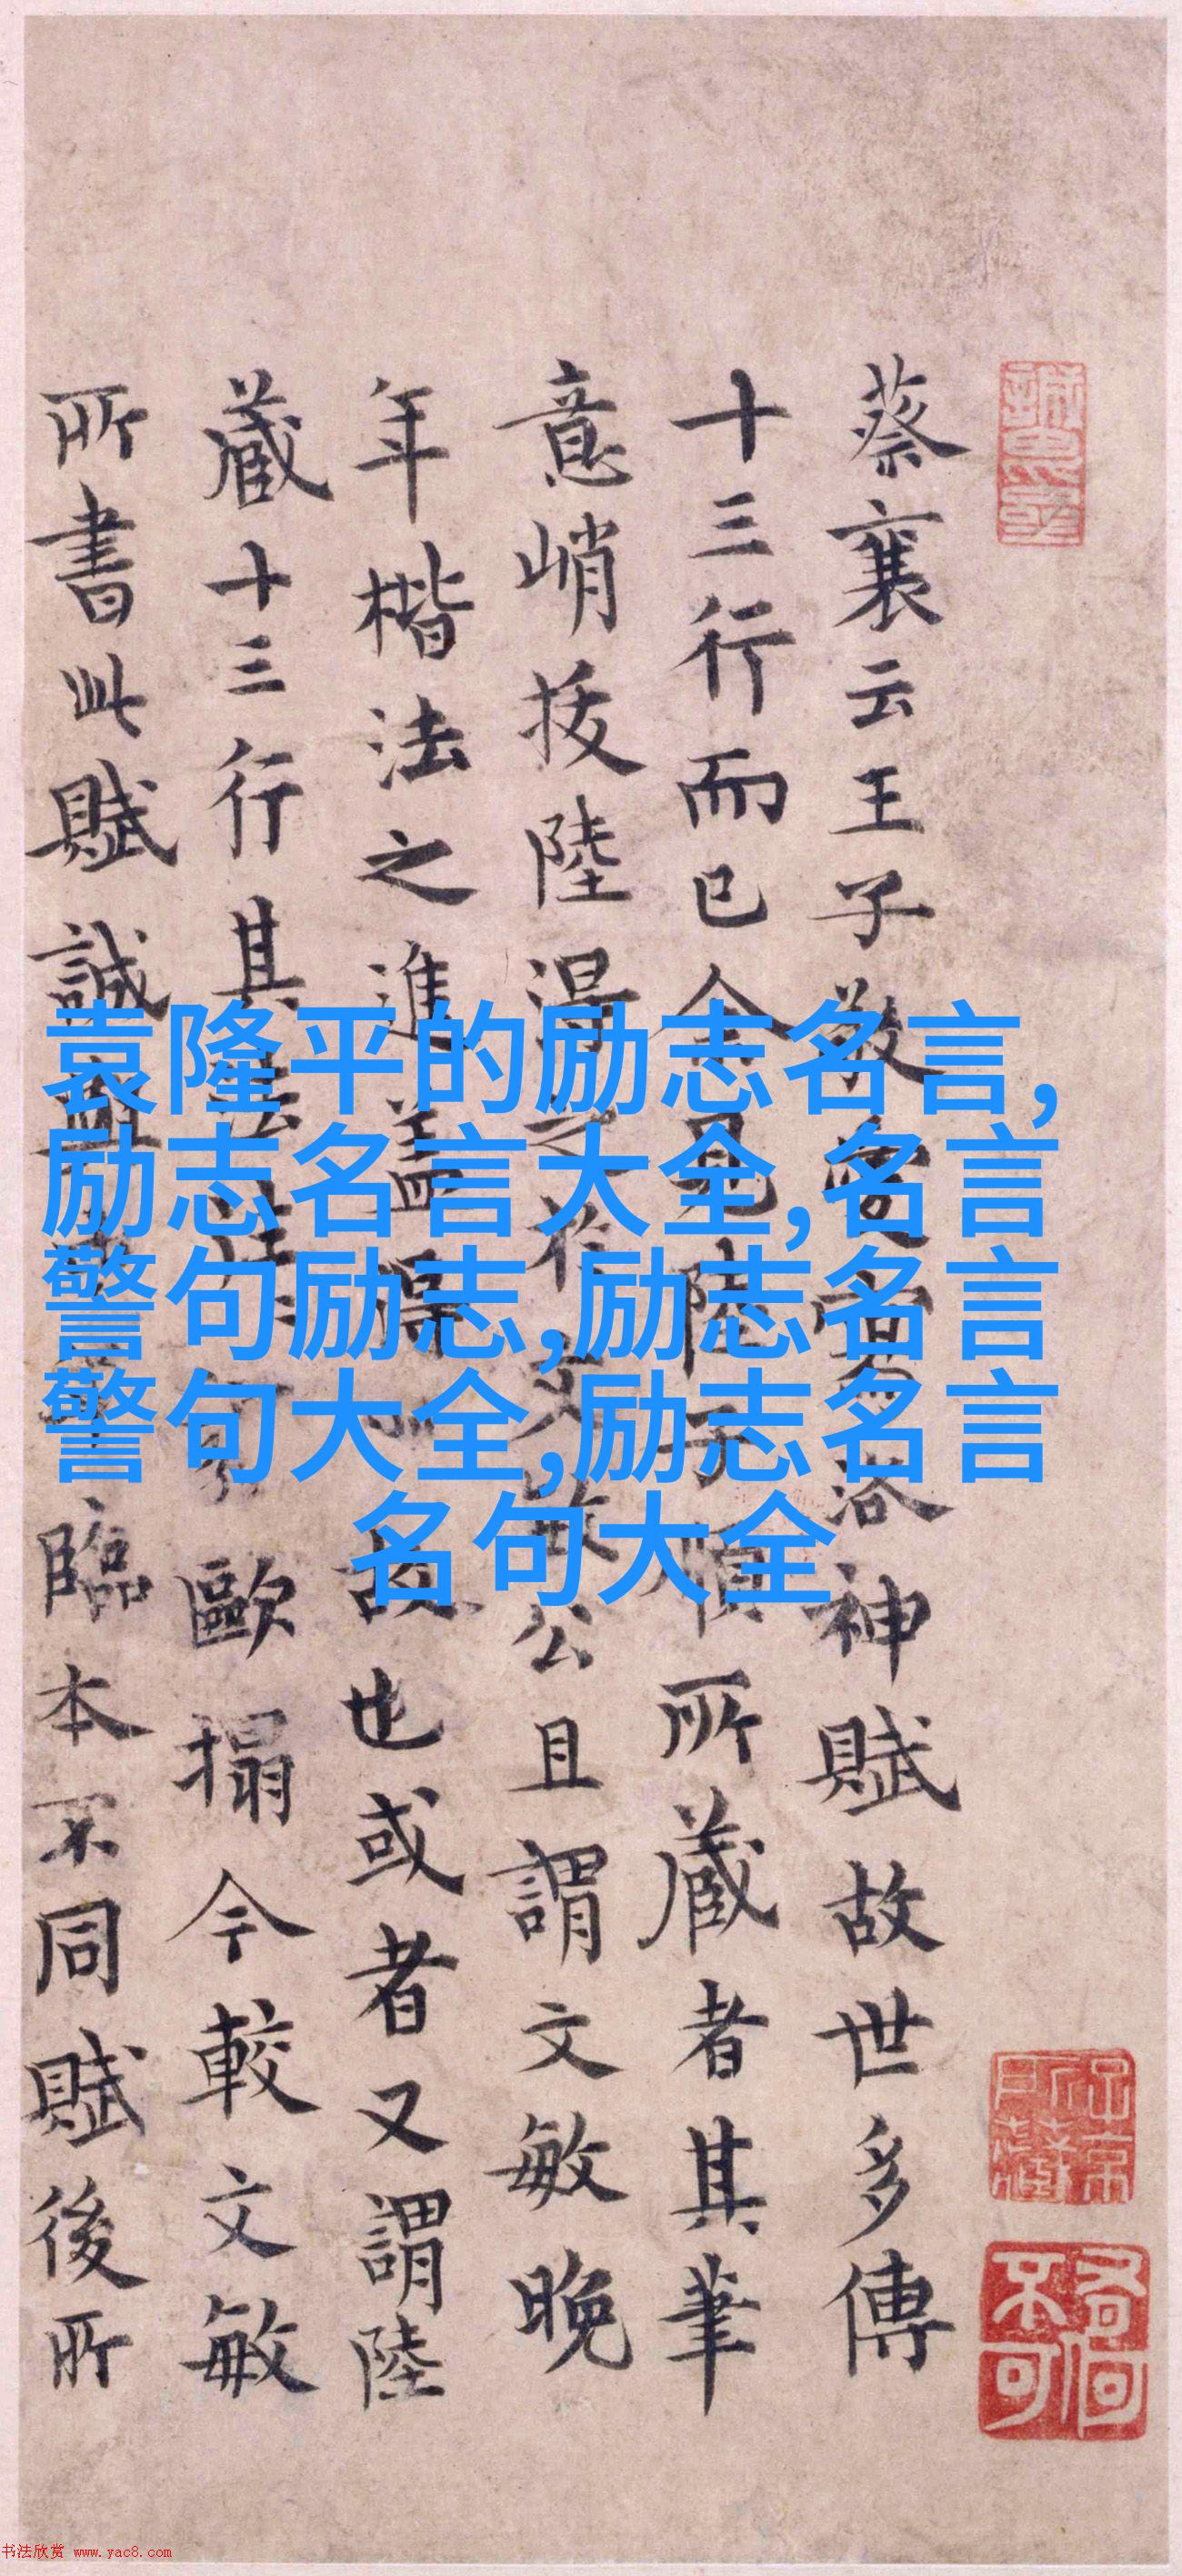 蔡襄云王子敬洛神賦故世多傳
十三行而已今見陸子順所藏者其筆
意峭拔陸得之於文敏公且謂文敏晚
年楷法之進蓋得故也或者又謂陸
藏十三行其法歐搨今較文敏
所書此賦誠臨本不同賦後所
袁隆平的励志名言,
励志名言大全,名言
警句励志,励志名言
警句大全,励志名言
名句大全
书法欣赏 www.yac8.com